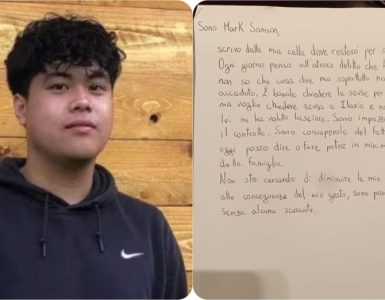 Sono Mark Samson,
scrivo dalla mia cella dove resterò per
Ogni giorno penso all'atroce delitto che
non so che cosa dire ma soprattutto
accaduto. È banale chiedere le scuse, per
ma voglio chiedere scusa a Ilaria e
lei mi ha voluto lasciare. Sono impazz
il controllo. Sono consapevole del fatt
oggi posso dire o fare potrà in minim
della famiglia.
Non sto cercando di diminuire le mie
alle conseguenze del mio gesto, sono pro
senza alcuna scusante.